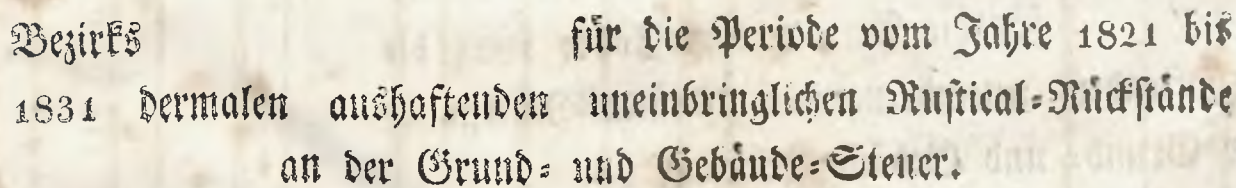 Bezirks für die Periode vom Jahre 1821 bis
1831 dermalen aushaftenden uneinbringlichen Rustical-Rückstände
an der Grund- und Gebäude-Steuer.